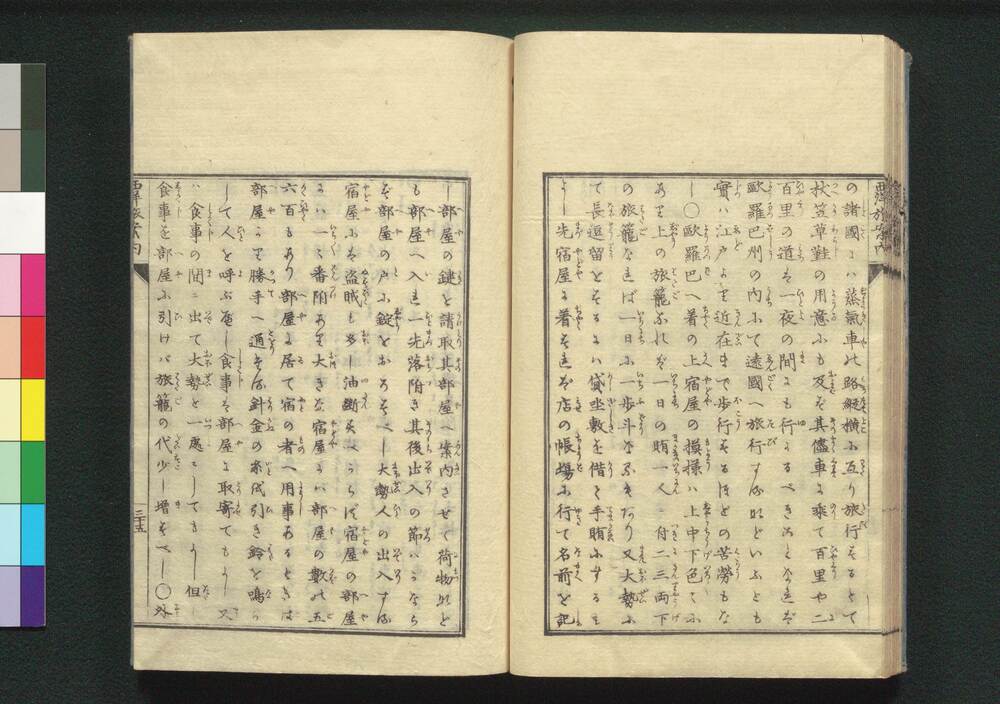 の諸國には蒸氣車の路縱横に互り旅行するとて
杖笠草鞋の用意にも及ばず其儘車に乘て百里や二
百里の道は一夜の間にも行かるべきことなれば
歐羅巴州の内にて遠國へ旅行するなどといふとも
實は江戸より近在まで歩行するほどの苦勞もな
し〇歐羅巴へ着の上宿屋の模樣は上中下色々に
あり上の旅籠なれば一日の賄一人ニ付二三両下
の旅籠なれば一日に一歩斗なるきたり又大勢に
て長逗留をするには貸坐敷を借て手賄にするも
よし先宿屋に着すれば店の帳場に行て名前を記
西洋旅案内
し部屋の鍵を請取其部屋へ案内させて荷物など
も部屋へ入れ一先落附き其後出入の節はかなら
ず部屋の戸に錠をおろすべし大勢人の出入する
宿屋には盜賊も多し油断すべからず宿屋の部屋
には一々番附あり大きな宿屋には部屋の數は五
六百もあり部屋に居て宿の者へ用事あるときは
部屋より勝手へ通ずる針金の糸を引き鈴を鳴ら
して人を呼ぶべし食事は部屋に取寄てもよし又
ハ食事の間ニ出て大勢と一處ニしてもよし但し
食事を部屋に引けバ旅籠の代少し増すべし〇外
西洋旅案内
三十五